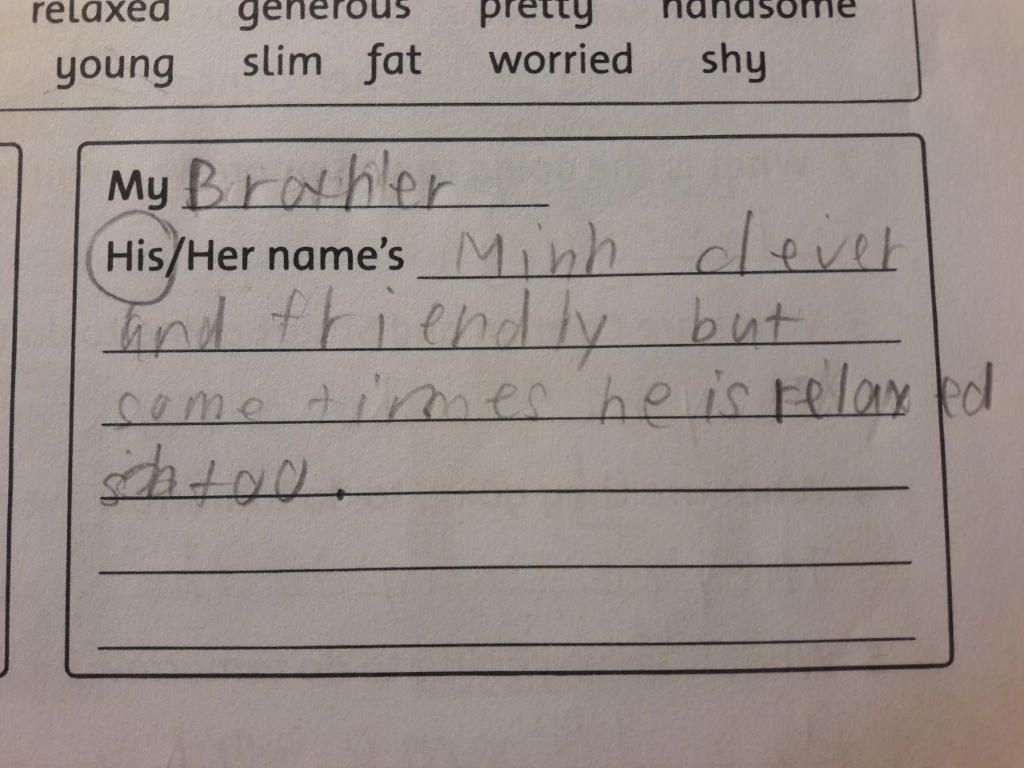 relaxed generous pretty handsome
young slim fat worried shy
My Brother
His/Her name's Minh clever
and friendly but
some times he is relaxed
too.